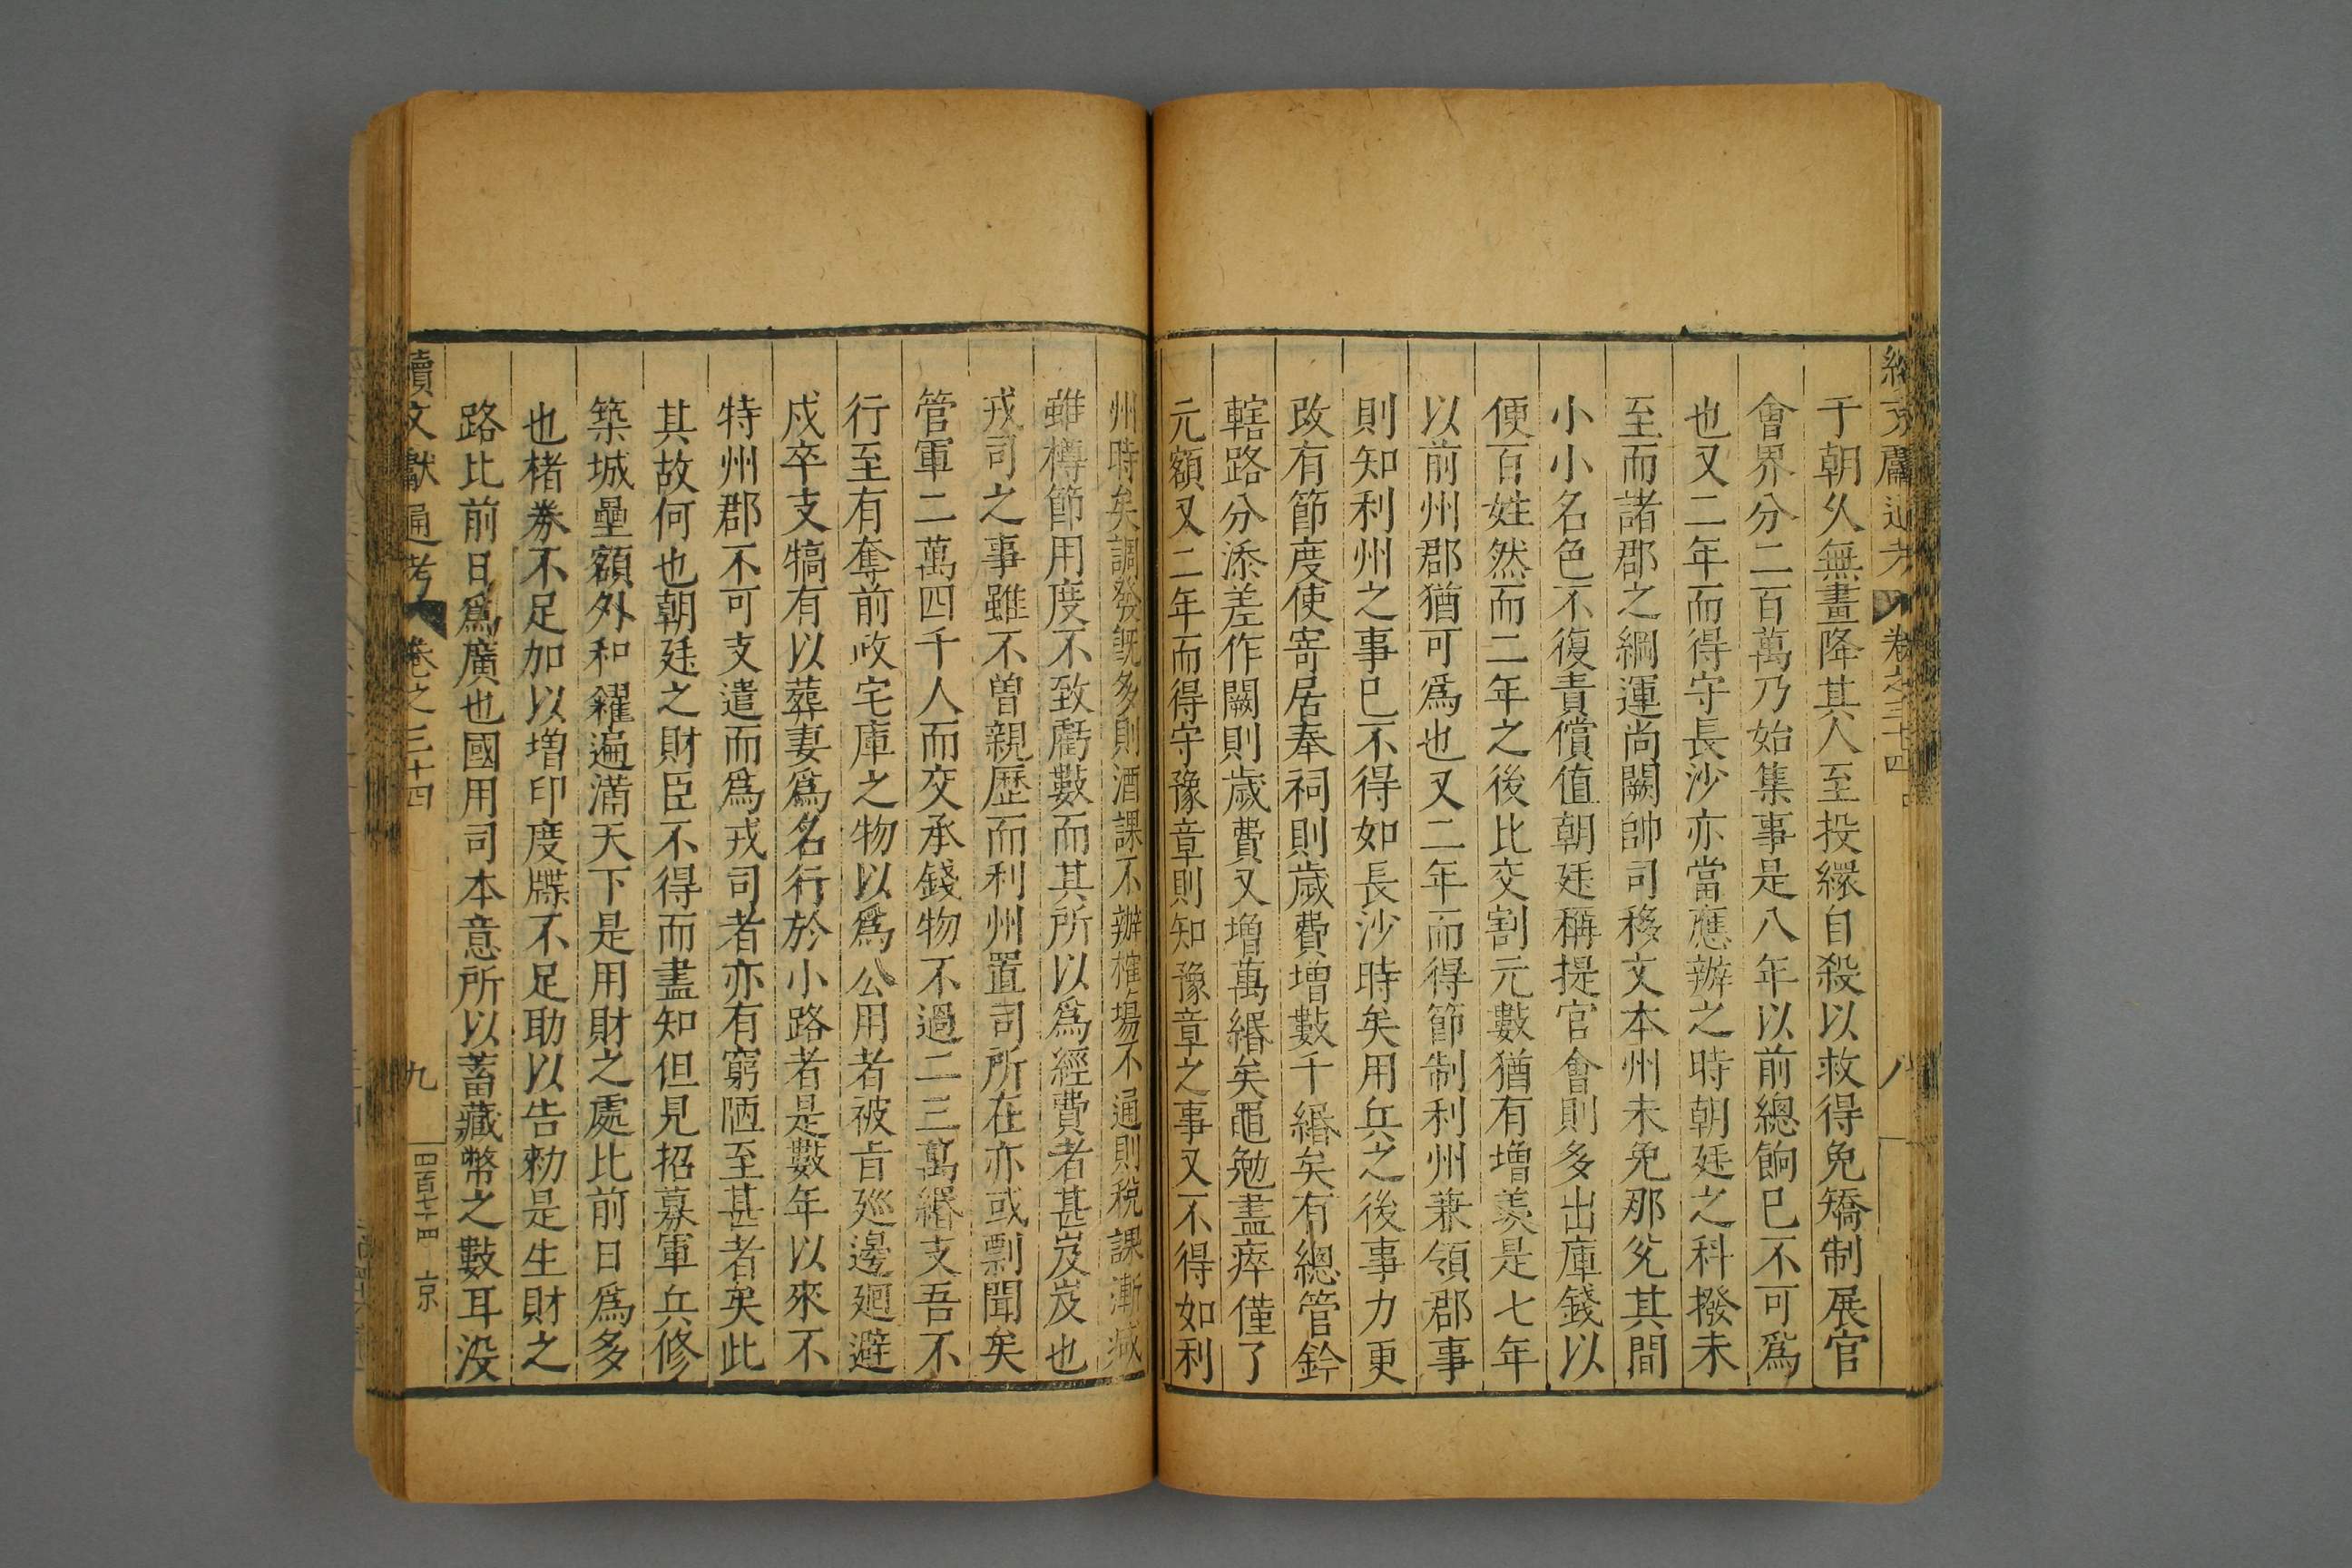 續文獻通考 卷之三十四 八
于朝久無畫降其人至投繯自殺以救得免矯制展官
會界分二百萬乃始集事是八年以前總餉已不可爲
也又二年而得守長沙亦當應辦之時朝廷之科撥未
至而諸郡之綱運尚闕帥司移文本州未免那兊其間
小小名色不復責償值朝廷稱提官會則多出庫錢以
便百姓然而二年之後比交割元數猶有增羨是七年
以前州郡猶可爲也又二年而得節制利州兼領郡事
則知利州之事已不得如長沙時矣用兵之後事力更
改有節度使寄居奉祠則歲費增數千緡矣有總管鈐
轄路分添差作闕則歲費又增萬緡矣黽勉盡瘁僅了
元額又二年而得守豫章則知豫章之事又不得如利
州時矣調發既多則酒課不辦榷塲不通則稅課漸減
雖樽節用度不致虧數而其所以爲經費者甚岌岌也
戎司之事雖不曾親歷而利州置司所在亦或剽聞矣
管軍二萬四千人而交承錢物不過二三萬緡支吾不
行至有奪前政宅庫之物以爲公用者被旨廵邊廻避
戍卒支犒有以葬妻爲名行於小路者是數年以來不
特州郡不可支遣而爲戎司者亦有窮陋至甚者矣此
其故何也朝廷之財臣不得而盡知但見招募軍兵修
築城壘額外和糴遍滿天下是用財之處比前日爲多
也楮券不足加以增印度牒不足助以告勑是生財之
路比前日爲廣也國用司本意所以蓄藏幣之數耳没
續文獻通考 卷之三十四 九 四百七十四 京